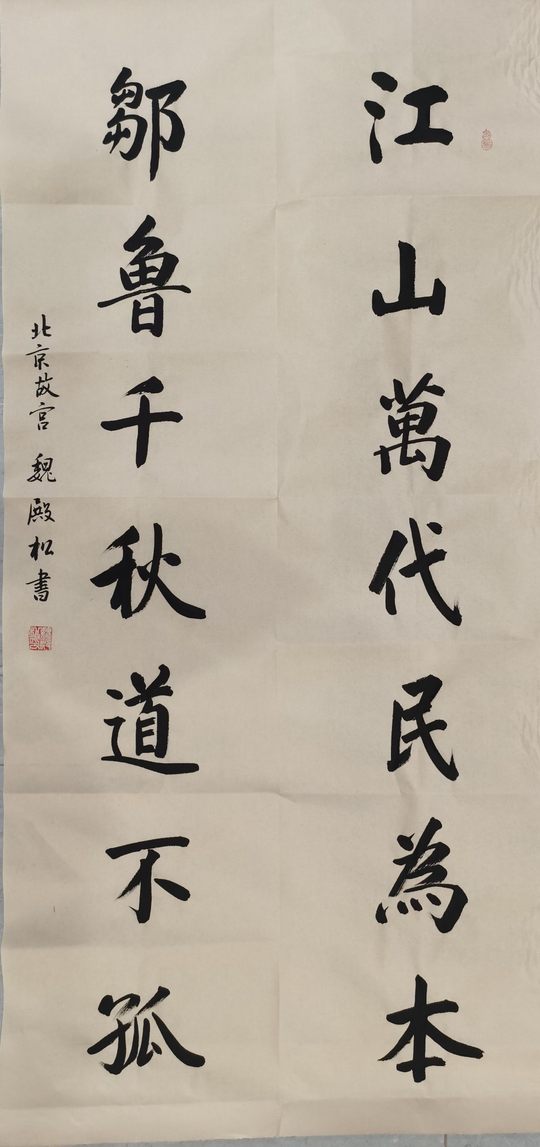 江山萬代民為本
鄒魯千秋道不孤
北京故宮 魏殿松書